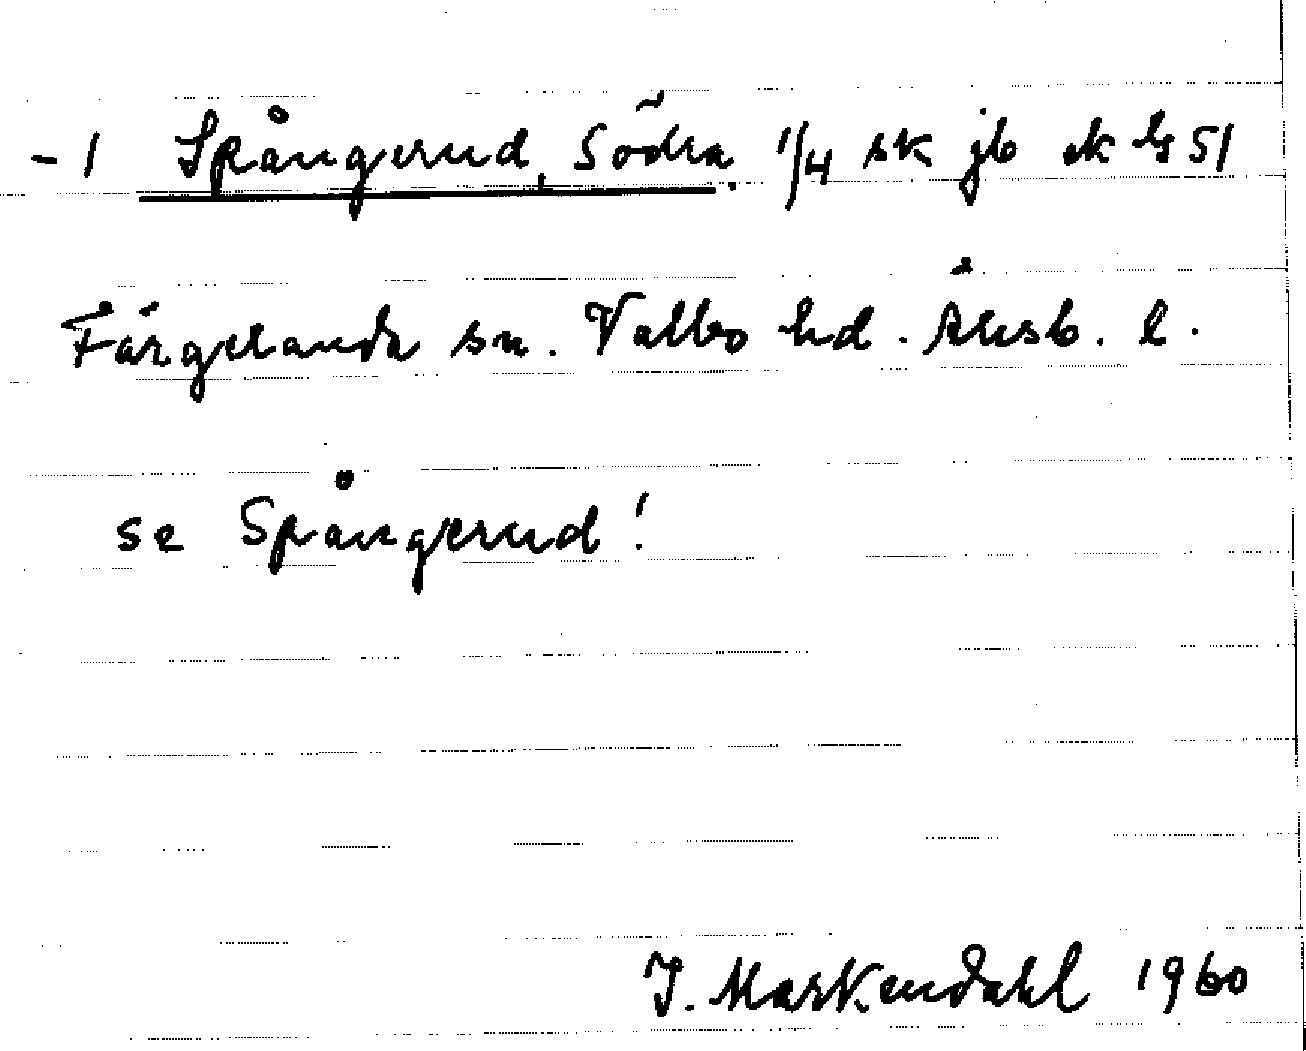 - 1 Spångerud, Södra. 1/4 sk jb ek bs 51
Färgelanda sn. Valbo hd. Älvsb. l.
se Spångerud!
J. Markendahl 1960